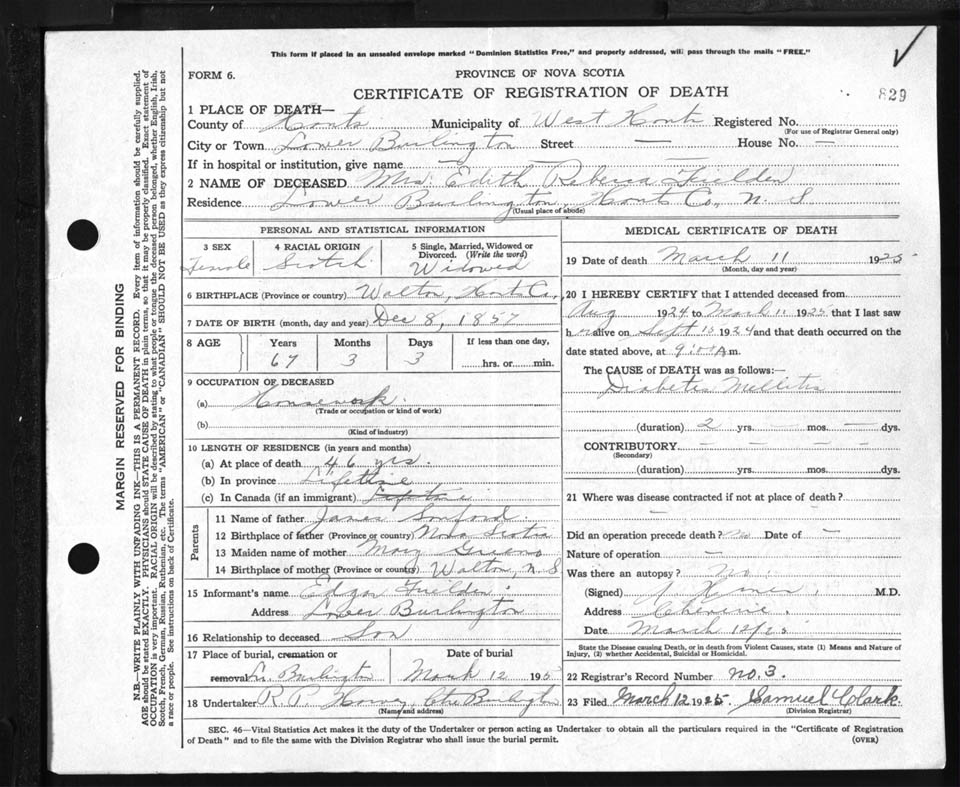 This form if placed in an unsealed envelope marked "Dominion Statistics Free," and properly addressed, will pass through the mails "FREE."
FORM 6.
PROVINCE OF NOVA SCOTIA
CERTIFICATE OF REGISTRATION OF DEATH
829
1 PLACE OF DEATH—
County of Hants Municipality of West Hants Registered No.
(For use of Registrar General only)
City or Town Lower Burlington Street — House No. —
If in hospital or institution, give name —
2 NAME OF DECEASED Mrs. Edith Rebecca Fielden
Residence Lower Burlington, Hants Co., N. S
(Usual place of abode)
PERSONAL AND STATISTICAL INFORMATION
3 SEX 4 RACIAL ORIGIN 5 Single, Married, Widowed or Divorced. (Write the word)
Female Scotch Widowed
6 BIRTHPLACE (Province or country) Walton, Hants Co.,
7 DATE OF BIRTH (month, day and year) Dec 8, 1857
8 AGE Years Months Days If less than one day,
67 3 3 hrs. or min.
9 OCCUPATION OF DECEASED
(a) Housework
(Trade or occupation or kind of work)
(b)
(Kind of industry)
10 LENGTH OF RESIDENCE (in years and months)
(a) At place of death 46 yrs.
(b) In province Lifetime
(c) In Canada (if an immigrant) Lifetime
Parents
11 Name of father James
12 Birthplace of father (Province or country) Nova Scotia
13 Maiden name of mother Mary
14 Birthplace of mother (Province or country) Walton, N.S
15 Informant's name Edgar Fielden
Address Lower Burlington
16 Relationship to deceased Son
17 Place of burial, cremation or removal Date of burial
L. Burlington March 12 195
18 Undertaker R. P. Burlington
(Name and address)
MEDICAL CERTIFICATE OF DEATH
19 Date of death March 11 1925
(Month, day and year)
20 I HEREBY CERTIFY that I attended deceased from
Aug 1924 to March 11 1925, that I last saw
her alive on Sept 15 1924 and that death occurred on
date stated above, at 9:00 A m.
The CAUSE of DEATH was as follows:—
Diabetes Mellitus
(duration) 2 yrs. — mos. — dys.
CONTRIBUTORY — — — —
(Secondary)
(duration) — yrs. — mos. — dys.
21 Where was disease contracted if not at place of death?
—
Did an operation precede death? No Date of —
Nature of operation —
Was there an autopsy? No.
(Signed) M.D.
Address Cheverie.
Date March 12/25
State the Disease causing Death, or in death from Violent Causes, state (1) Means and Nature of Injury, (2) whether Accidental, Suicidal or Homicidal.
22 Registrar's Record Number no. 3.
23 Filed March 12 1925 Samuel Clark.
(Division Registrar)
SEC. 46—Vital Statistics Act makes it the duty of the Undertaker or person acting as Undertaker to obtain all the particulars required in the "Certificate of Registration
of Death" and to file the same with the Division Registrar who shall issue the burial permit.
(OVER)
MARGIN RESERVED FOR BINDING
N.B.—WRITE PLAINLY WITH UNFADING INK—THIS IS A PERMANENT RECORD. Every item of information should be carefully supplied.
AGE should be stated EXACTLY. PHYSICIANS should STATE CAUSE OF DEATH in plain terms, so that it may be properly classified. Exact statement of
OCCUPATION is very important. RACIAL ORIGIN will be described by stating to what people or tongue the deceased person belonged, whether English, Irish,
Scotch, French, German, Russian, Ruthenian, etc. The terms "AMERICAN" or "CANADIAN" SHOULD NOT BE USED as they express citizenship but not
a race or people. See instructions on back of Certificate.